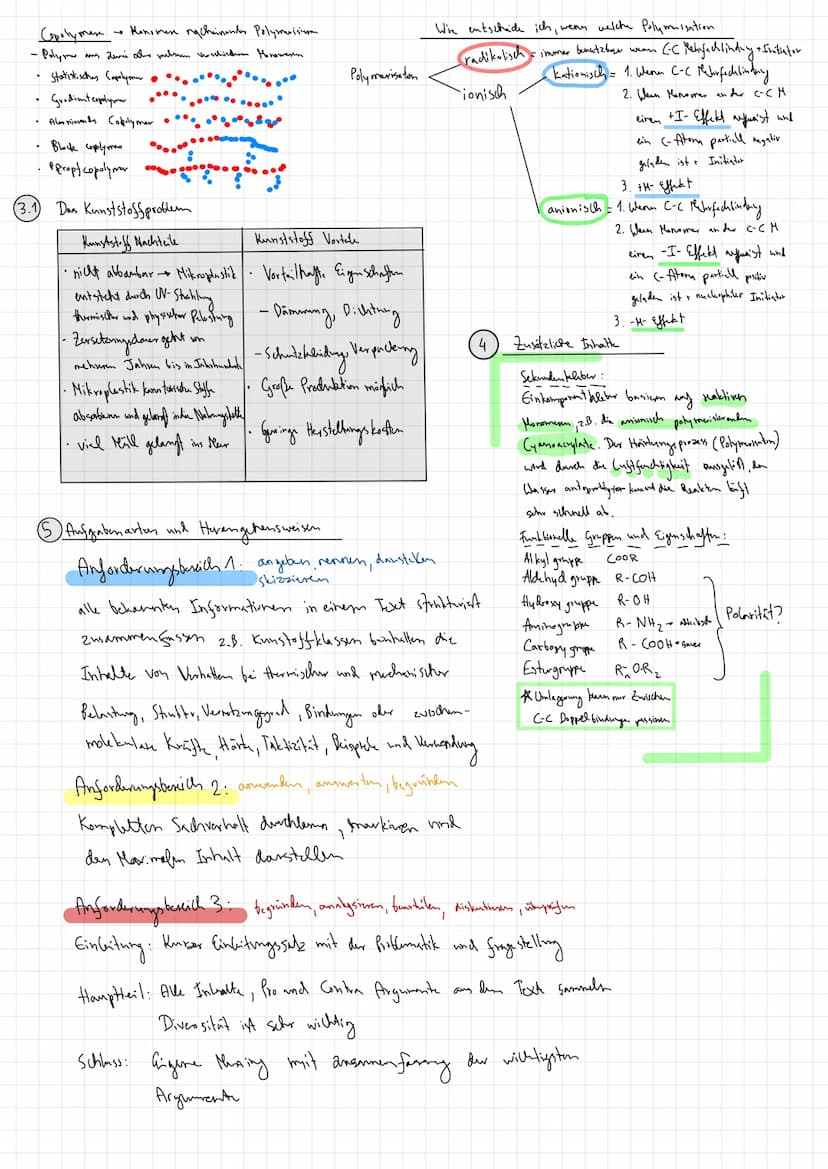 Copolymere → Monomere nacheinander Polymerisieren
– Polymer aus zwei oder mehreren verschieden Monomeren
· Statistisches Copolymer
· Gradientcopolymer
· Alternierendes Copolymer
· Block copolymer
· Pfropfcopolymer
Wie entscheide ich, wann welche Polymerisation
Polymerisation
radikalisch = immer benutzbar wenn C-C Mehrfachbindung + Initiator
ionisch
kationisch = 1. Wenn C-C Mehrfachbindung
2. Wenn Monomer an der C-C M
einen +I-Effekt aufweist und
ein C-Atom partiell negativ
geladen ist + Initiator
3. +M-Effekt
anionisch = 1. Wenn C-C Mehrfachbindung
2. Wenn Monomer an der C-C M
einen -I-Effekt aufweist und
ein C-Atom partiell positiv
geladen ist + nucleophiler Initiator
3. -M-Effekt
3.1 Das Kunststoffproblem
Kunststoff Nachteile
· nicht abbaubar → Mikroplastik
entsteht durch UV-Strahlung
thermischer und physischer Belastung
· Zersetzungsdauer geht von
mehreren Jahren bis in Jahrhunderte
· Mikroplastik kann toxische Stoffe
absorbieren und gelangt in die Nahrungskette
· viel Müll gelangt ins Meer
Kunststoff Vorteile
· Vorteilhafte Eigenschaften
– Dämmung, Dichtung
– Schutzkleidung, Verpackung
· Große Produktion möglich
· Geringe Herstellungskosten
4 Zusätzliche Inhalte
Sekundenkleber:
Einkomponentkleber basieren auf reaktiven
Monomeren, z.B. die anionisch polymerisierenden
Cyanacrylate. Der Härtungsprozess (Polymerisation)
wird durch die Luftfeuchtigkeit ausgelöst, da
Wasser und die Reaktion läuft
sehr schnell ab.
Funktionelle Gruppen und Eigenschaften:
Alkyl gruppe COOR
Aldehyd gruppe R-COH
Hydroxy gruppe R-OH
Aminogruppe R-NH2 →
Carboxy gruppe R-COOH → sauer
Estergruppe R1-O-R2
Polarität?
* Umlagerung kann nur zwischen
C-C Doppelbindungen passieren
5 Aufgabenarten und Herangehensweisen
Anforderungsbereich 1: angeben, nennen, darstellen
skizzieren
alle bekannten Informationen in einem Text strukturiert
zusammenfassen z.B. Kunststoffklassen beinhalten die
Inhalte von Verhalten bei thermischer und mechanischer
Belastung, Struktur, Vernetzungsgrad, Bindungen oder zwischen-
molekulare Kräfte, Härte, Taktizität, Beispiele und Verwendung
Anforderungsbereich 2: anwenden, auswerten, begründen
Kompletten Sachverhalt durchlesen, markieren und
den Maximalen Inhalt darstellen
Anforderungsbereich 3: begründen, analysieren, beurteilen, diskutieren, überprüfen
Einleitung: Kurzer Einleitungssatz mit der Problematik und Fragestellung
Hauptteil: Alle Inhalte, Pro und Contra Argumente aus dem Text sammeln
Diversität ist sehr wichtig
Schluss: Eigene Meinung mit der wichtigsten
Argumente